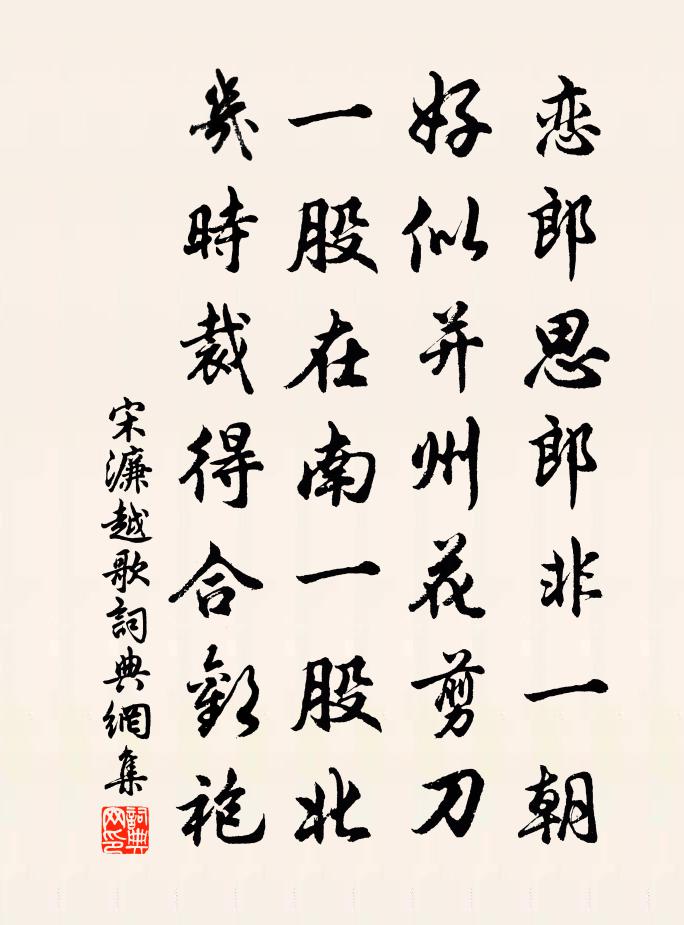 恋郎思郎非一朝
好似并州花剪刀
一股在南一股北
幾時裁得合歡袍
宋濂越歌詞典網集
詞典网印